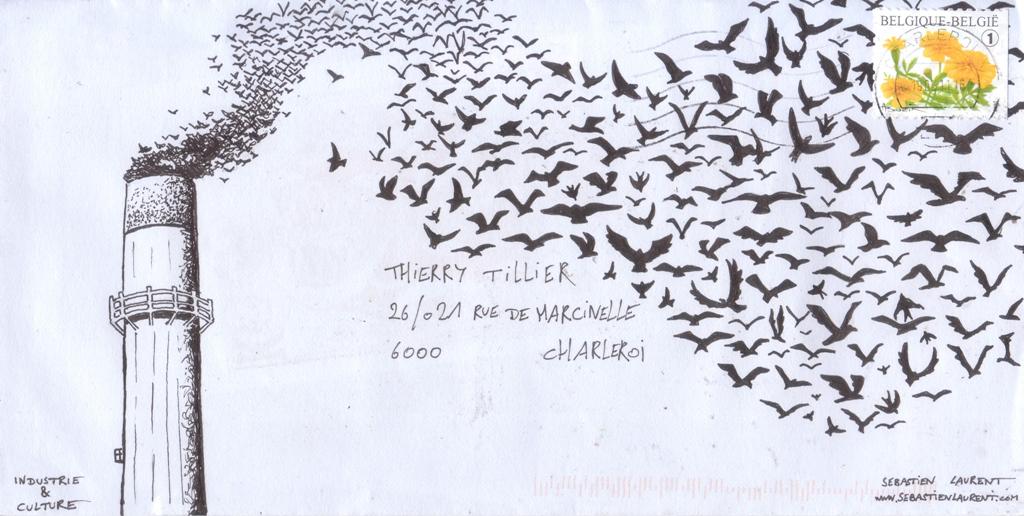 BELGIQUE-BELGIË
1
THIERRY TILLIER
26/021 RUE DE MARCINELLE
6000 CHARLEROI
INDUSTRIE
&
CULTURE
SEBASTIEN LAURENT
www.SEBASTIENLAURENT.COM